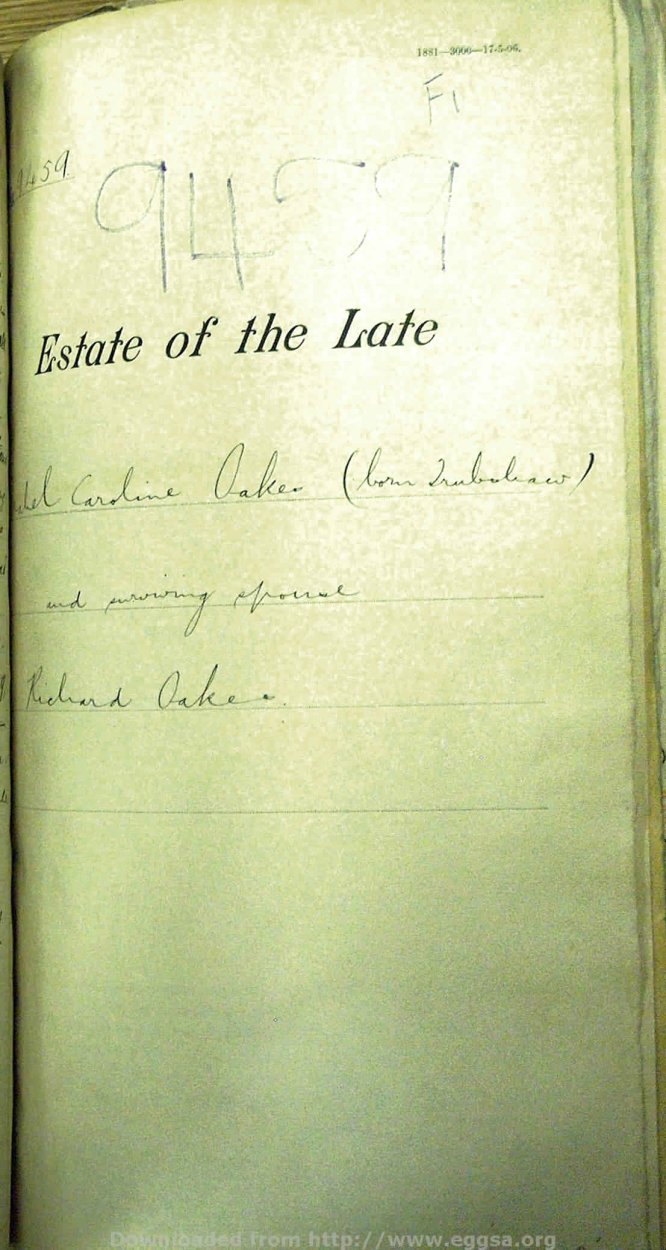 1881—3000—17-5-06.
F1
9459
9459
Estate of the Late
Caroline Oakes (born Trubshaw)
and surviving spouse
Richard Oakes.
Downloaded from http://www.eggsa.org